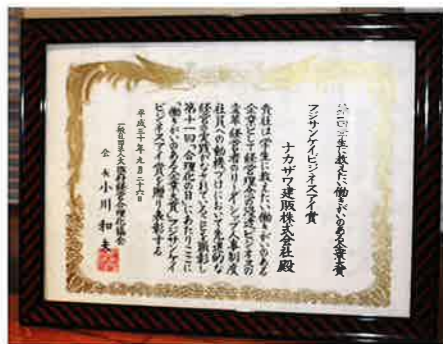 学生に教えたい働きがいのある企業大賞
フジサンケイビジネスアイ賞
ナカザワ建販株式会社 殿
貴社は「学生に教えたい働きがいのある
企業」として経営理念の浸透ビジネスの
変革経営者のリーダーシップ人事制度
社員への動機づけにおいて先進的な
経営の実践がなされていることを顕彰し
第十一回「合理化の日」にあたりここに
「働きがいのある企業大賞」フジサンケイ
ビジネスアイ賞を贈り表彰する
平成三十年九月二十六日
一般社団法人大阪府経営合理化協会
会長 小川 和